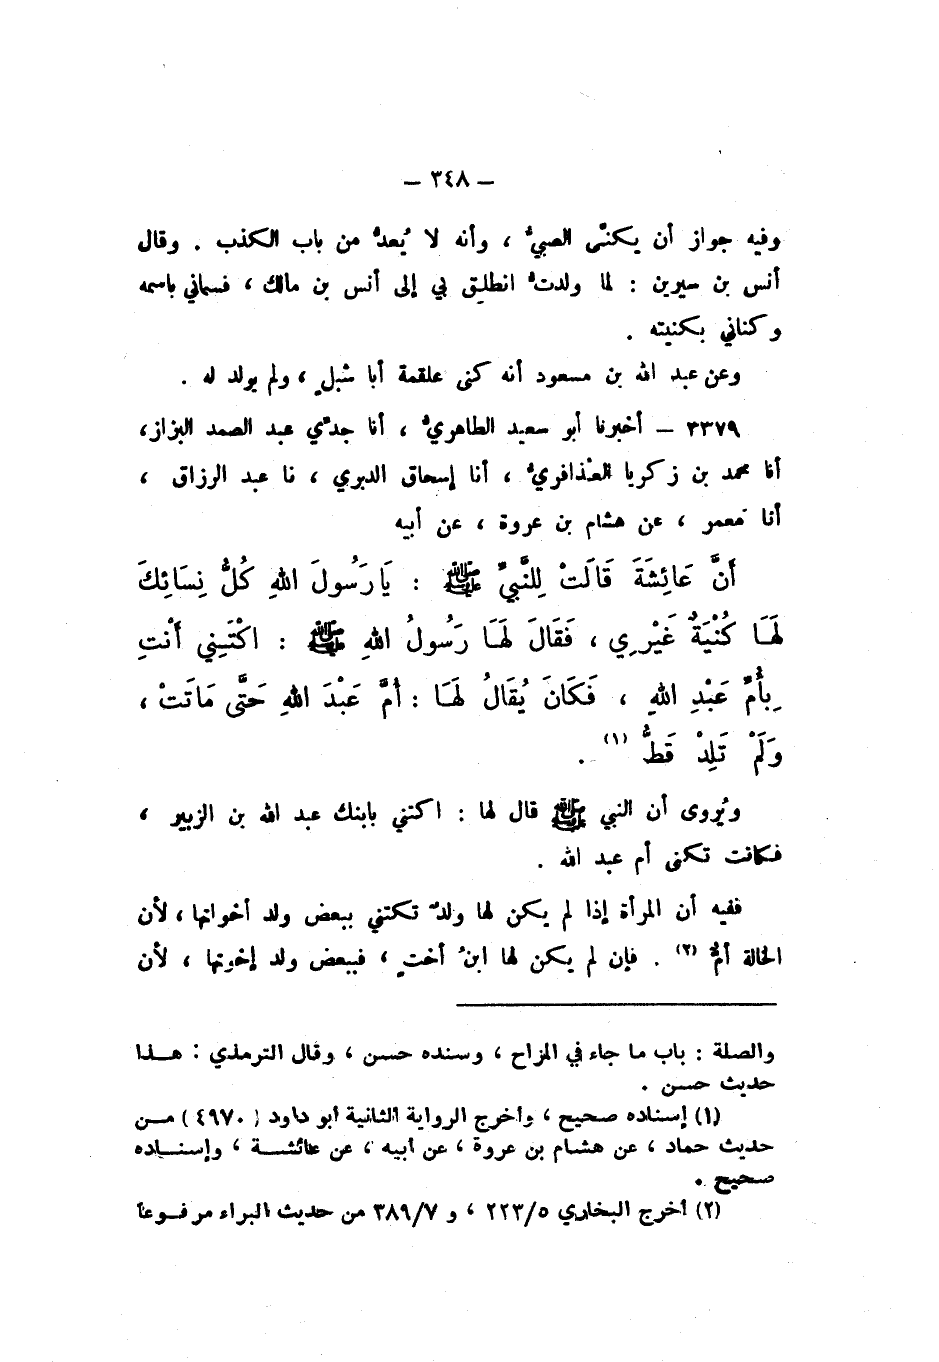 – ٣٤٨ –
وفيه جواز أن يكنّى الصبيُّ ، وأنه لا يُعدُّ من باب الكذب . وقال
أنس بن سيرين : لما ولدتُ انطلق بي إلى أنس بن مالك ، فسماني باسمه
وكناني بكنيته .
وعن عبد الله بن مسعود أنه كنى علقمة أبا شبلٍ ، ولم يولد له .
٣٣٧٩ – أخبرنا أبو سعيد الطاهريُّ ، أنا جدّي عبد الصمد البزاز،
أنا محمد بن زكريا العُذافريُّ ، أنا إسحاق الدبري ، نا عبد الرزاق ،
أنا مَعمر ، عن هشام بن عروة ، عن أبيه
أَنَّ عَائِشَةَ قَالَتْ لِلنَّبِيِّ ﷺ : يَارَسُولَ اللهِ كُلُّ نِسَائِكَ
لَهَا كُنْيَةٌ غَيْرِي ، فَقَالَ لَهَا رَسُولُ اللهِ ﷺ : اكْتَنِي أَنْتِ
بِأُمِّ عَبْدِ اللهِ ، فَكَانَ يُقَالُ لَهَا : أُمَّ عَبْدَ اللهِ حَتَّى مَاتَتْ ،
وَلَمْ تَلِدْ قَطُّ (١) .
ويُروى أن النبي ﷺ قال لها : اكتني بابنك عبد الله بن الزبير ،
فكانت تكنى أم عبد الله .
ففيه أن المرأة إذا لم يكن لها ولدٌ تكتني ببعض ولد أخواتها ، لأن
الخالة أمٌّ (٢) . فإن لم يكن لها ابنُ أختٍ ، فببعض ولد إخوتها ، لأن
والصلة : باب ما جاء في المزاح ، وسنده حسن ، وقال الترمذي : هـذا
حديث حسن .
(١) إسناده صحيح ، وأخرج الرواية الثانية أبو داود ( ٤٩٧٠ ) مـن
حديث حماد ، عن هشام بن عروة ، عن أبيه ، عن عائشـة ، وإسنـاده
صحيح .
(٢) أخرج البخاري ٢٢٣/٥ ، و ٣٨٩/٧ من حديث البراء مرفـوعاً